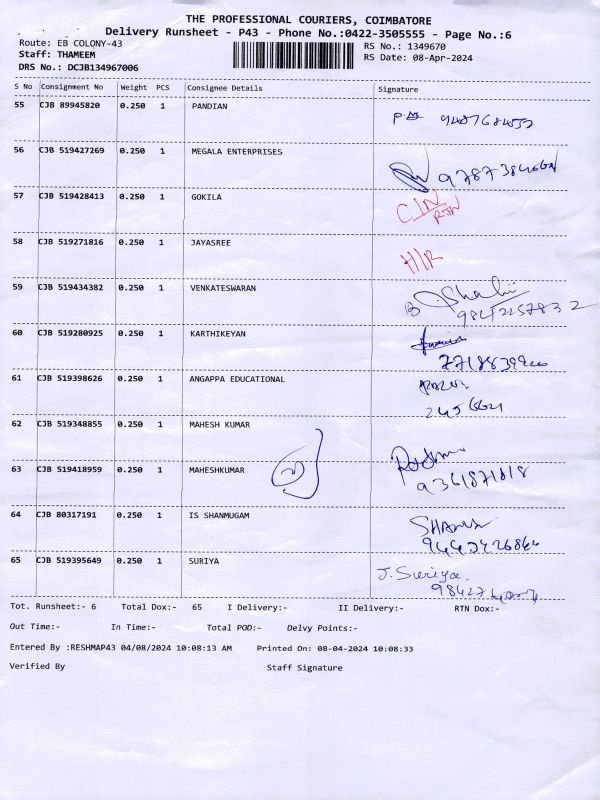 THE PROFESSIONAL COURIERS, COIMBATORE
Delivery Runsheet - P43 - Phone No.:0422-3505555 - Page No.:6
Route: EB COLONY-43
RS No.: 1349670
Staff: THAMEEM
RS Date: 08-Apr-2024
DRS No.: DCJB134967006
S No Consignment No Weight PCS Consignee Details Signature
55 CJB 89945820 0.250 1 PANDIAN
56 CJB 519427269 0.250 1 MEGALA ENTERPRISES
57 CJB 519428413 0.250 1 GOKILA
58 CJB 519271816 0.250 1 JAYASREE
H/R
59 CJB 519434382 0.250 1 VENKATESWARAN
60 CJB 519280925 0.250 1 KARTHIKEYAN
61 CJB 519398626 0.250 1 ANGAPPA EDUCATIONAL
62 CJB 519348855 0.250 1 MAHESH KUMAR
63 CJB 519418959 0.250 1 MAHESHKUMAR
9361871818
64 CJB 80317191 0.250 1 IS SHANMUGAM
65 CJB 519395649 0.250 1 SURIYA
J. Suriya.
Tot. Runsheet:- 6 Total Dox:- 65 I Delivery:- II Delivery:- RTN Dox:-
Out Time:- In Time:- Total POD:- Delvy Points:-
Entered By :RESHMAP43 04/08/2024 10:08:13 AM Printed On: 08-04-2024 10:08:33
Verified By Staff Signature